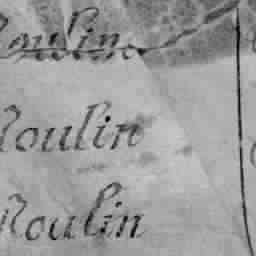 Moulin
Moulin
Moulin